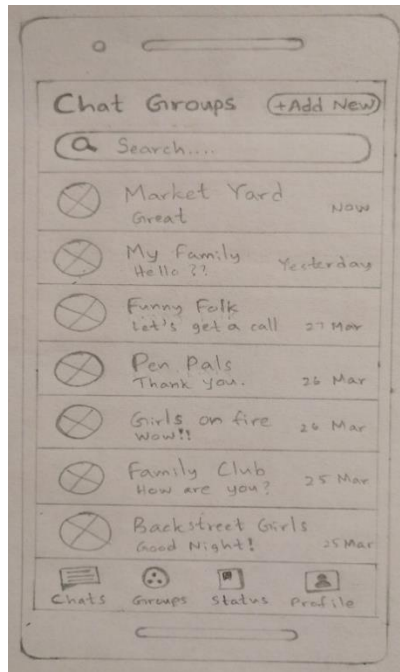 Chat Groups +Add New
Search....
Market Yard
Great Now
My Family
Hello ?? Yesterday
Funny Folk
Let's get a call 27 Mar
Pen Pals
Thank you. 26 Mar
Girls on fire
Wow!! 26 Mar
Family Club
How are you? 25 Mar
Backstreet Girls
Good Night! 25 Mar
Chats Groups Status Profile